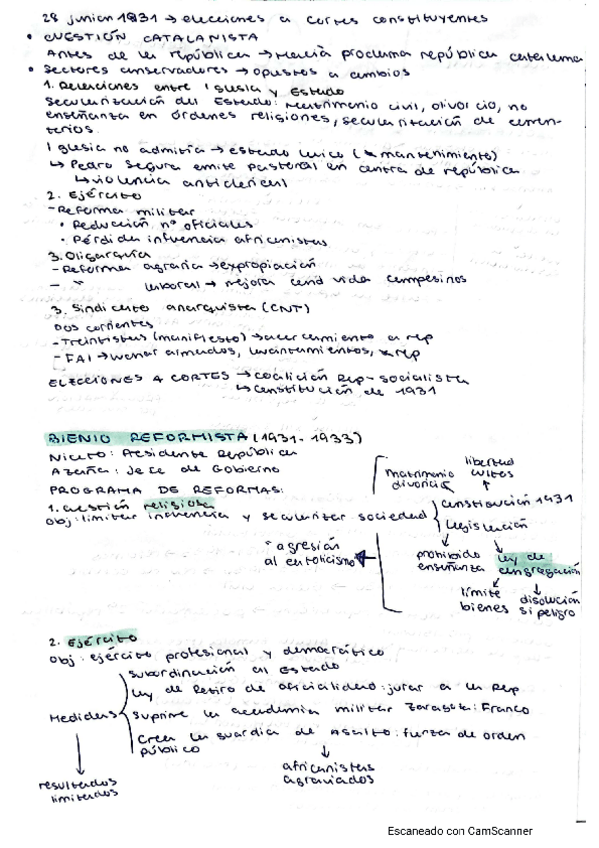 28 junio 1931 → elecciones a Cortes constituyentes
• CUESTIÓN CATALANISTA
Antes de la república → Macià proclama república catalana
• Sectores conservadores → opuestos a cambios
1. Relaciones entre Iglesia y Estado
Secularización del Estado: Matrimonio civil, divorcio, no
enseñanza en órdenes religiones, secularización de cemen-
terios.
Iglesia no admitía → estado laico (mantenimiento)
↳ Pedro Segura emite pastoral en contra de república
↳ violencia anticlerical
2. Ejército
- Reforma militar
• Reducción nº oficiales
• Pérdida influencia africanistas
3. Oligarquía
- Reforma agraria → expropiación
- " laboral → mejora cond vida campesinos
3. Sindicato anarquista (CNT)
Dos corrientes
- Treintistas (manifiesto) → acercamiento a rep
- FAI → armados, levantamientos, x rep
ELECCIONES A CORTES → coalición Rep-socialista
↳ constitución de 1931
BIENIO REFORMISTA (1931-1933)
Niceto: Presidente República
Azaña: Jefe de Gobierno
PROGRAMA DE REFORMAS:
1. cuestión religiosa
Obj: limitar influencia y secularizar sociedad
matrimonio
divorcio
libertad
cultos
Constitución 1931
legislación
prohibido
enseñanza
Ley de
congregación
límite
bienes
disolución
si peligro
* agresión
al catolicismo
2. Ejército
Obj: ejército profesional y democrático
Medidas
subordinación al Estado
Ley de Retiro de oficialidad: jurar a la Rep
Suprime la academia militar Zaragoza: Franco
Crea la Guardia de Asalto: fuerza de orden
público
africanistas
agraviados
resultados
limitados
Escaneado con CamScanner